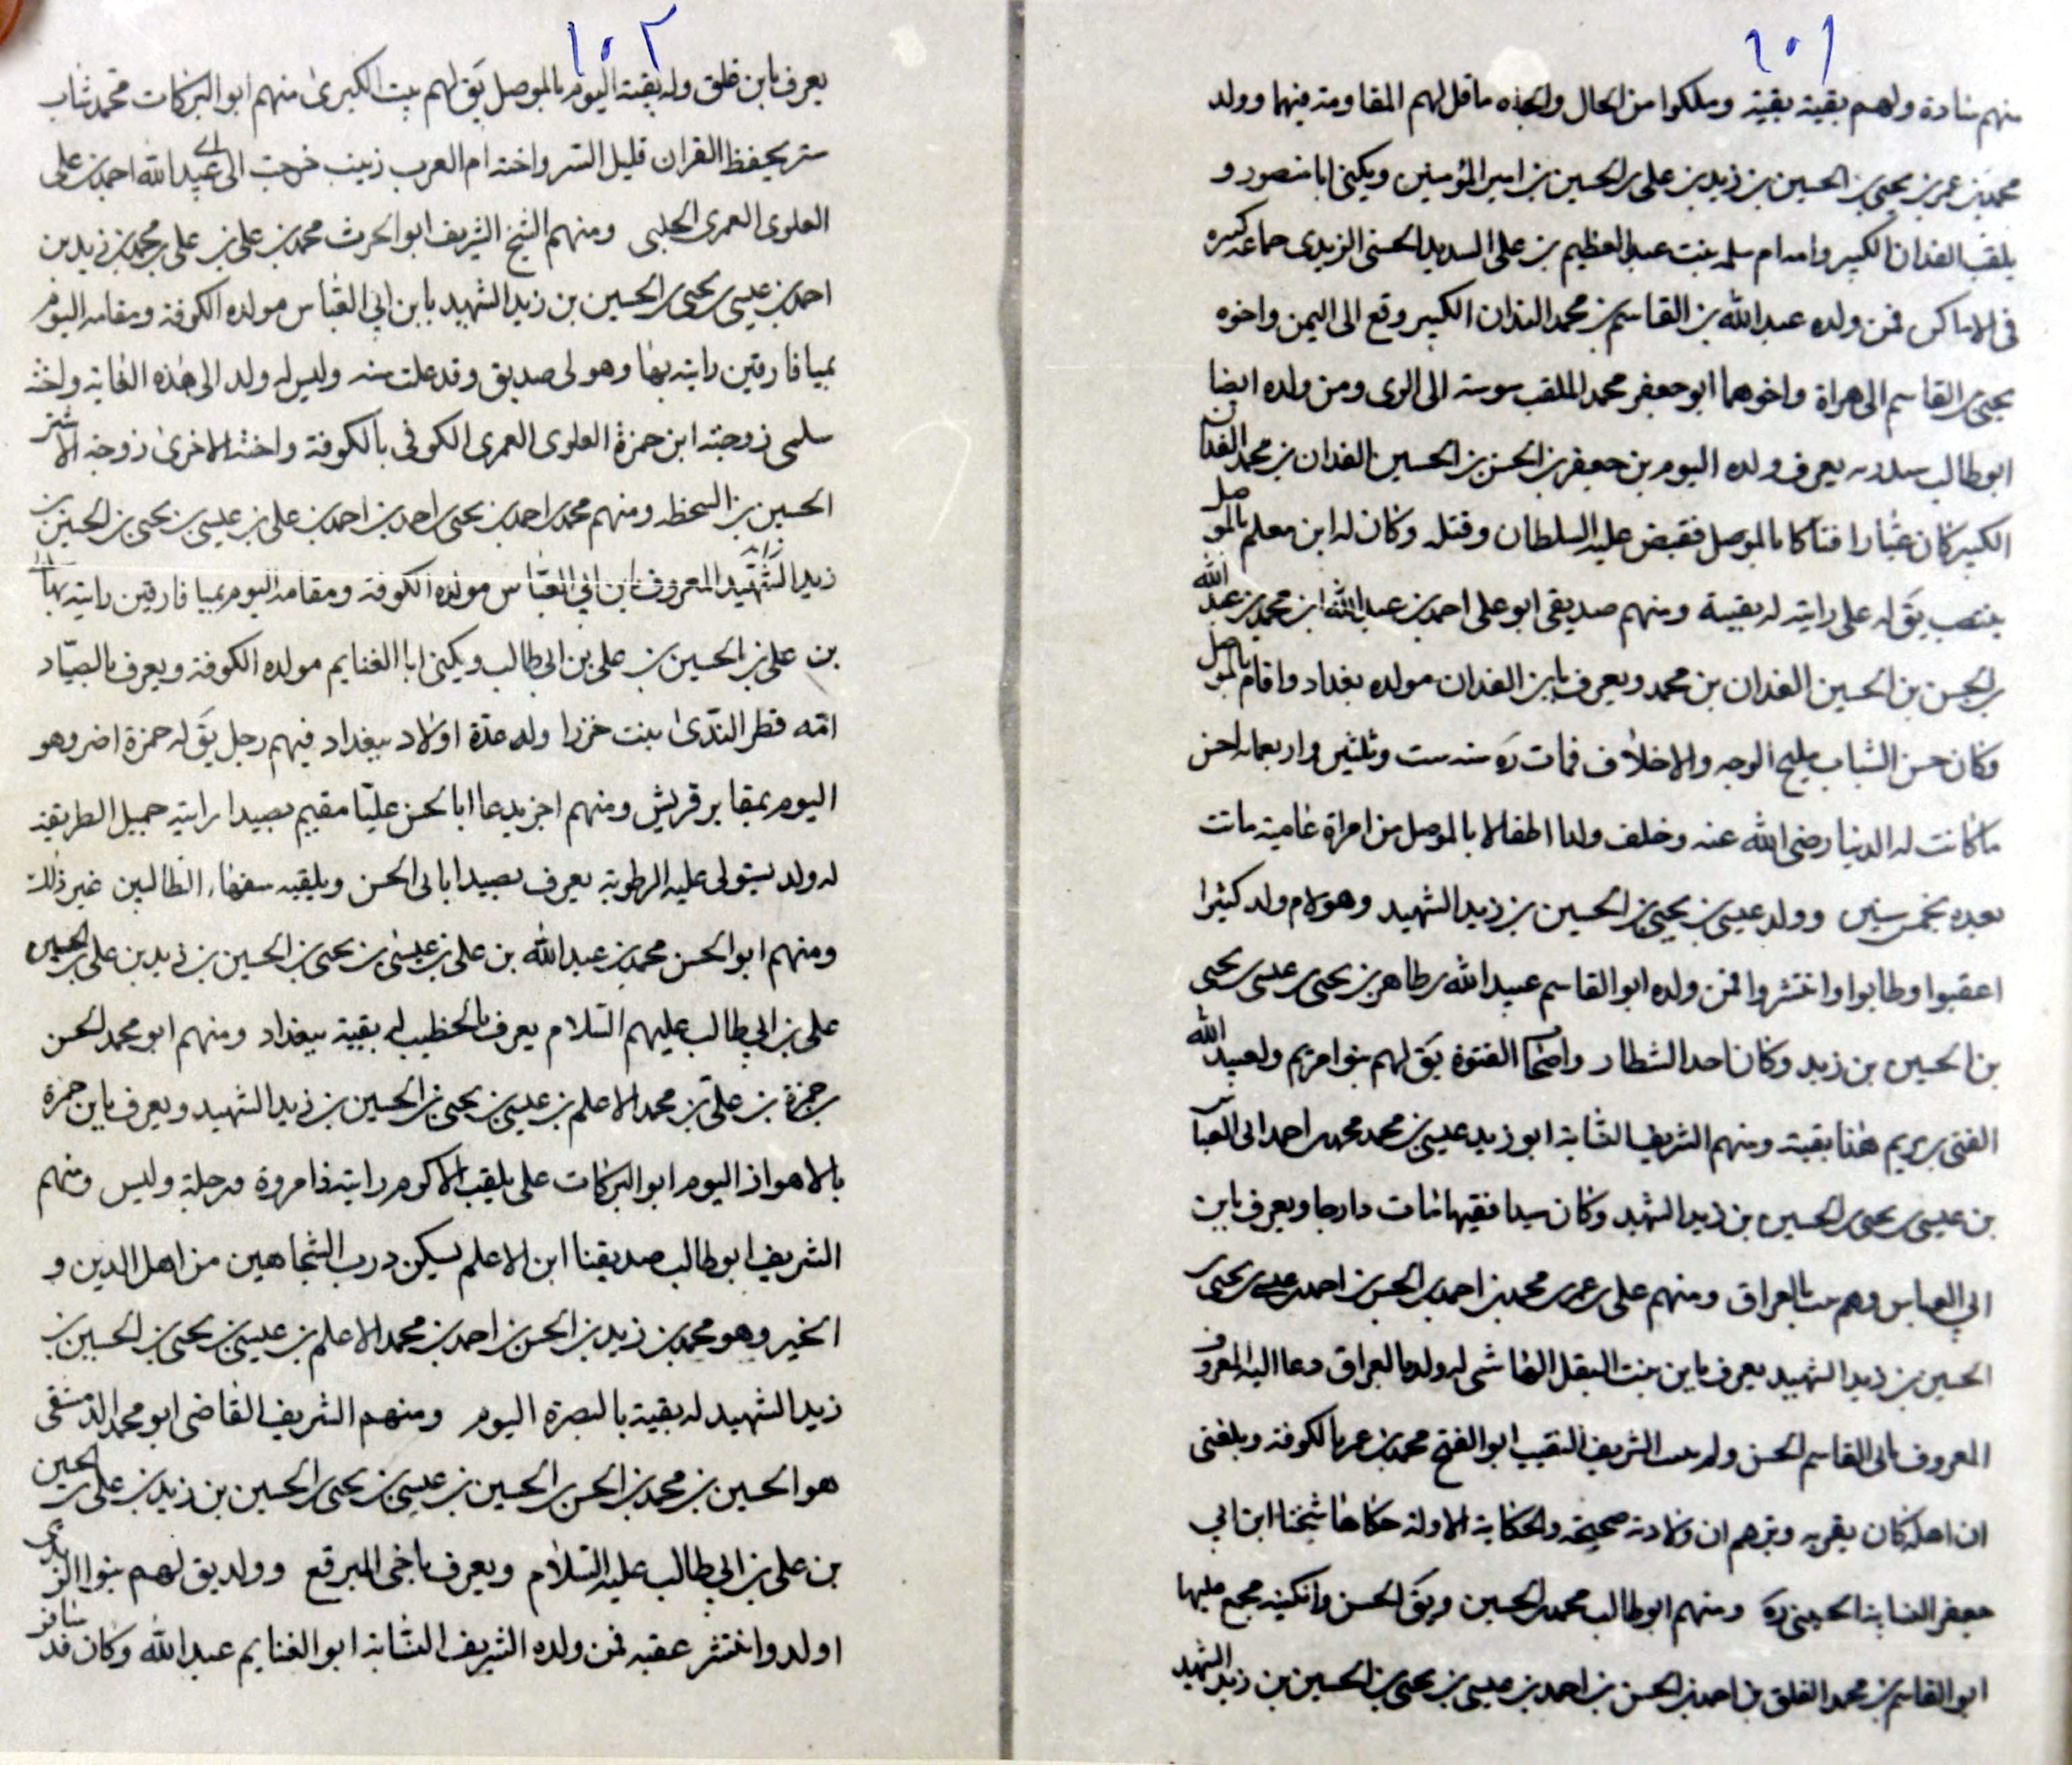 ١٠١
منهم سادة ولهم بقية بقية وملكوا من الحال والجاه ما قل لهم المقاومة فيهما وولد
محمد بن عمر بن يحيى بن الحسين بن زيد بن على بن الحسين بن امير المؤمنين ويكنى ابا منصور و
يلقب الفدان الكبير وامه ام سلمه بنت عبد العظيم بن على السديد الحسنى الزيدى جماعه كثيره
فى الاماكن فمن ولده عبد الله بن القاسم بن محمد الفدان الكبير وقع الى اليمن واخوه
يحيى بن القاسم الى هراة واخوهما ابو جعفر محمد الملقب سوسة الى الرى ومن ولده ايضا
ابو طالب يعرف ولده اليوم بن جعفر بن الحسن بن الحسين الفدان بن محمد الفدان
الكبير كان عيارا فتاكا بالموصل فقبض عليه السلطان وقتله وكان له ابن معلم بالموصل
يق له على رايته له بقيبة ومنهم صديقى ابو على احمد بن عبد الله ابن محمد بن عبد الله
بن الحسن بن الحسين الفدان بن محمد ويعرف بابن الفدان مولده بغداد واقام بالموصل
وكان حسن الشباب مليح الوجه والاخلاف فمات ره سنه ست وثلثين واربعمائه احسن
ما كانت له الدنيا رضى الله عنه وخلف ولدا اطفالا بالموصل من امراة عامية ماتت
بعده بخمس سنين وولد عيسى بن يحيى بن الحسين بن زيد الشهيد وهو لام ولد كثيرا
اعقبوا وطابوا وانتشروا فمن ولده ابو القاسم عبيد الله بن طاهر بن يحيى بن عيسى بن يحيى
بن الحسين بن زيد وكان احد الشطار واصحاب الفتوة يق لهم بنوا مريم ولعبيد الله
الفتى بن مريم هنا بقية ومنهم الشريف النسابة ابو زيد عيسى بن محمد بن محمد بن احمد ابى العباس
بن عيسى بن يحيى بن الحسين بن زيد الشهيد وكان سيدا فقيها مات دارجا ويعرف بابن
ابى العباس وهم بيت بالعراق ومنهم على بن عمر بن محمد بن احمد بن الحسن بن احمد بن عيسى بن يحيى بن
الحسين بن زيد الشهيد يعرف بابن بنت البقل الهاشمى له ولد بالعراق دعا اليه المعروف
المعروف بابى القاسم الحسن ولم يثبت الشريف النقيب ابو الفتح محمد بن عمر بالكوفة وبلغنى
ان اهله كان يقر به وتبرهم ان ولادته صحيحة والحكاية الاولة حكاها شيخنا ابن ابى
جعفر النسابة الحسينى ره ومنهم ابو طالب محمد بن الحسين ويق الحسن والكنية مجمع عليها
ابو القاسم بن محمد الفلق بن احمد بن الحسن بن احمد بن عيسى بن يحيى بن الحسين بن زيد الشهيد
١٠٢
يعرف بابن فلق وله بقية اليوم بالموصل يق لهم بيت الكبرى منهم ابو البركات محمد شاب
ستر يحفظ القران قليل الشر واخته ام العرب زينب خرجت الى ابى عبد الله احمد بن على
العلوى العمرى الحلبى ومنهم الشيخ الشريف ابو الحرث محمد بن على بن على بن محمد بن زيد بن
احمد بن عيسى بن يحيى بن الحسين بن زيد الشهيد بابن ابى العباس مولده الكوفة ومقامه اليوم
بميا فارقين رايته بها وهو لى صديق وقد علت سنه وليس له ولد الى هذه الغاية واخته
سلمى زوجته ابن حمزة العلوى العمرى الكوفى بالكوفة واخته الاخرى زوجة الاشتر
الحسين بن السخطه ومنهم محمد بن احمد بن يحيى بن احمد بن احمد بن على بن عيسى بن يحيى بن الحسين بن
زيد الشهيد المعروف بابن ابى العباس مولده الكوفة ومقامه اليوم بميا فارقين رايته بها
بن على بن الحسين بن على بن ابى طالب ويكنى ابا الغنايم مولده الكوفة ويعرف بالصياد
امه قطر الندى بنت خزرا وله عدة اولاد ببغداد فيهم رجل يق له حمزة اضر وهو
اليوم بمقابر قريش ومنهم اخر يدعا ابا الحسن عليا مقيم بصيدا رايته جميل الطريقة
له ولد يستولى عليه الرطوبة يعرف بصيدا بابى الحسن ويلقبه سفهاء الطالبين غير ذلك
ومنهم ابو الحسن محمد بن عبد الله بن على بن عيسى بن يحيى بن الحسين بن زيد بن على بن الحسين
على بن ابى طالب عليهم السلام يعرف بالخطيب له بقية ببغداد ومنهم ابو محمد الحسن
بن حمزة بن على بن محمد الاعلم بن عيسى بن يحيى بن الحسين بن زيد الشهيد ويعرف بابن حمزة
بالاهواز اليوم ابو البركات على يلقب الاكرم رايته ذا مروة ورجلة وليس ومنهم
الشريف ابو طالب صديقنا ابن الاعلم يسكن درب الشجاهين من اهل الدين و
الخير وهو محمد بن زيد بن الحسن بن احمد بن محمد الاعلم بن عيسى بن يحيى بن الحسين بن
زيد الشهيد له بقية بالبصرة اليوم ومنهم الشريف القاضى ابو محمد الدمشقى
هو الحسين بن محمد بن الحسن بن الحسين بن عيسى بن يحيى بن الحسين بن زيد بن على بن الحسين
بن على بن ابى طالب عليه السلام ويعرف باخى المبرقع وولد يق لهم بنوا الزيدى
اولد وانتشر عقبه فمن ولده الشريف النسابة ابو الغنايم عبد الله وكان قد سافر